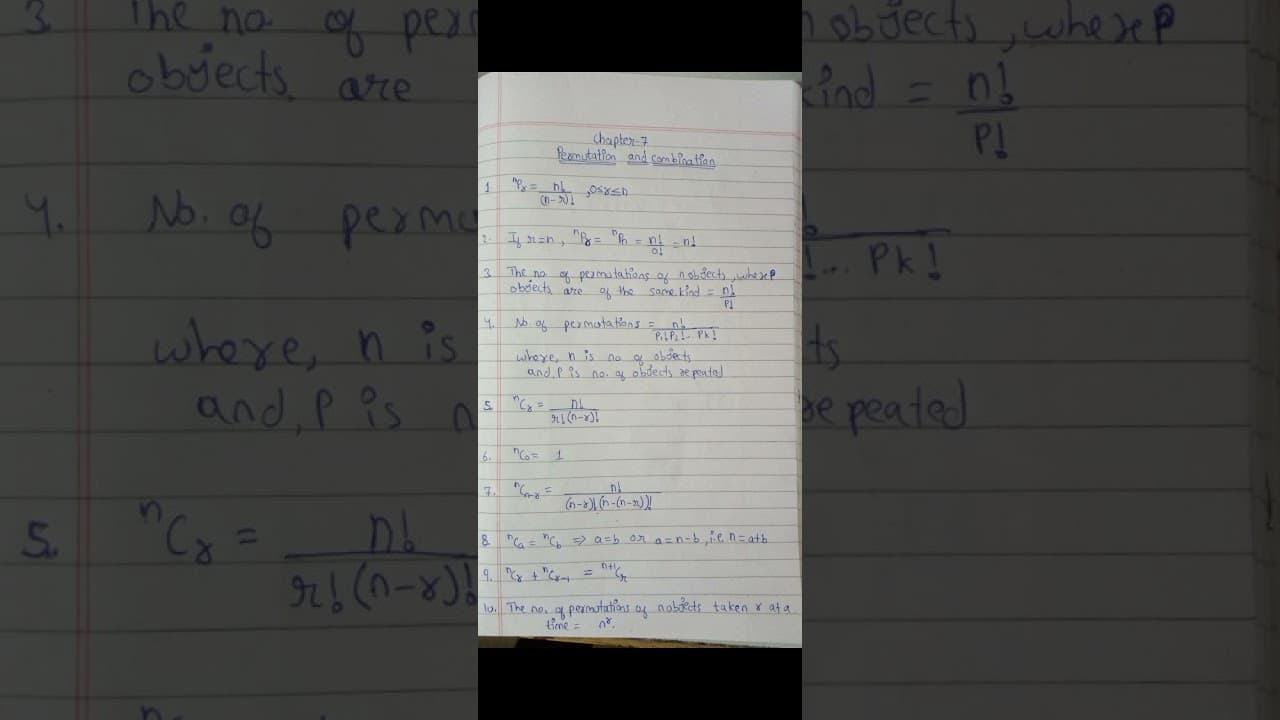 Chapter-7
Permutation and combination
1. ⁿPᵣ = n!/(n-r)! , 0≤r≤n
2. If r=n, ⁿPᵣ = ⁿPₙ = n!/0! = n!
3. The no of permutations of n objects, where P
objects are of the same kind = n!/P!
4. No. of permutations = n!/P₁!P₂!... Pk!
where, n is no of objects
and, P is no. of objects repeated
5. ⁿCᵣ = n!/r!(n-r)!
6. ⁿC₀ = 1
7. ⁿCₙ₋ᵣ = n!/(n-r)!(n-(n-r))!
8. ⁿCₐ = ⁿC_b ⇒ a=b or a=n-b, i.e n=a+b
9. ⁿCᵣ + ⁿCᵣ₋₁ = ⁿ⁺¹Cᵣ
10. The no. of permutations of n objects taken r at a
time = nʳ.